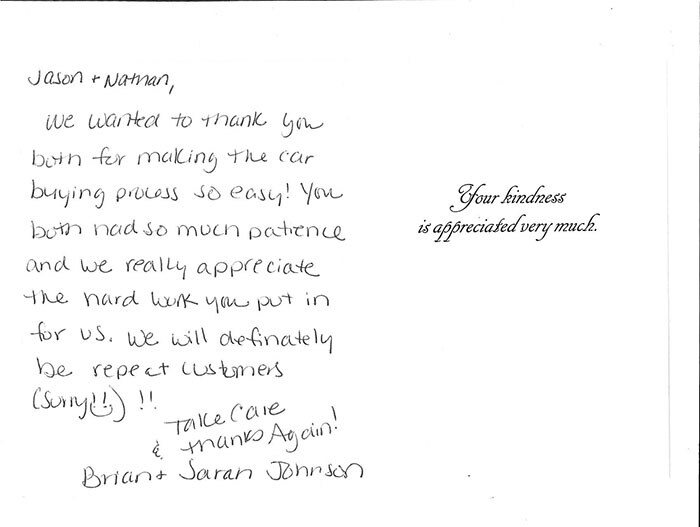 Jason + Nathan,
We wanted to thank you
both for making the car
buying process so easy! You
both had so much patience
and we really appreciate
the hard work you put in
for us. We will definately
be repeat customers
(sorry!!) !!
Take Care
& thanks Again!
Brian + Sarah Johnson
Your kindness
is appreciated very much.